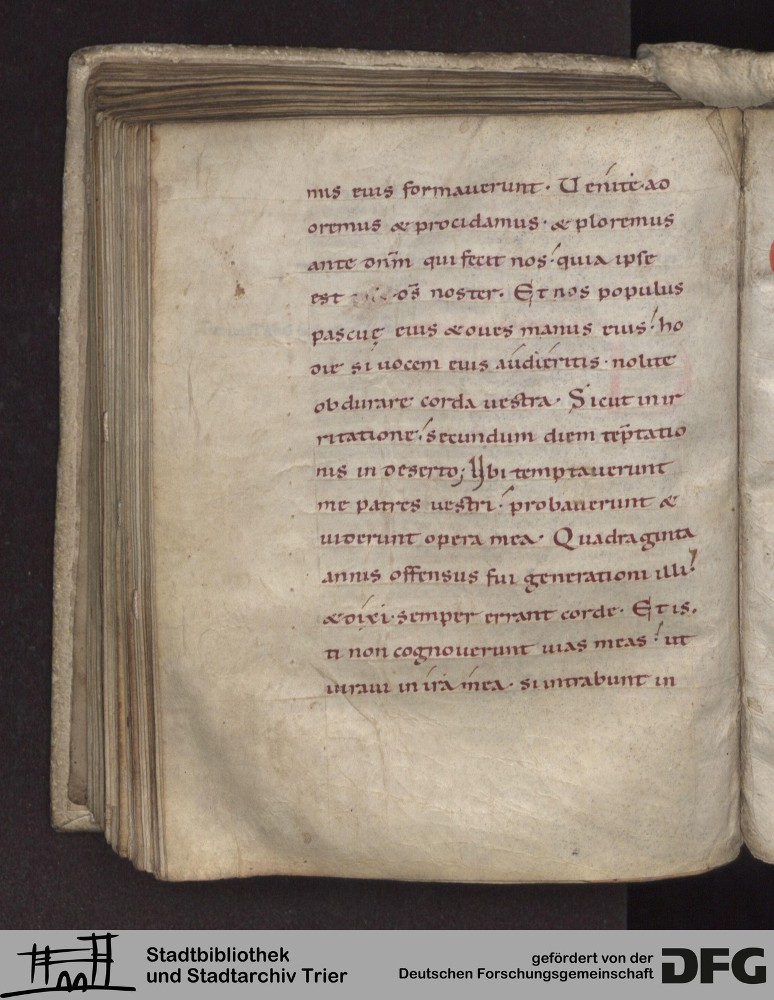 nus eius formauerunt· Uenite·ad
oremus & procidamus· & ploremus
ante dnm̄ qui fecit nos· quia ipse
est ds̄ noster. Et nos populus
pascuę eius & oues manus eius· ho
die si uocem eius audieritis· nolite
obdurare corda uestra· Sicut in ir
ritatione· secundum diem tēptatio
nis in deserto; Ubi temptauerunt
me patres uestri· probauerunt &
uiderunt opera mea· Quadraginta
annis offensus fui generationi illi·
& dixi·semper errant corde· Et is.
ti non cognouerunt uias meas· ut
iuraui in ira mea· si intrabunt in
Stadtbibliothek
und Stadtarchiv Trier
gefördert von der
Deutschen Forschungsgemeinschaft
DFG